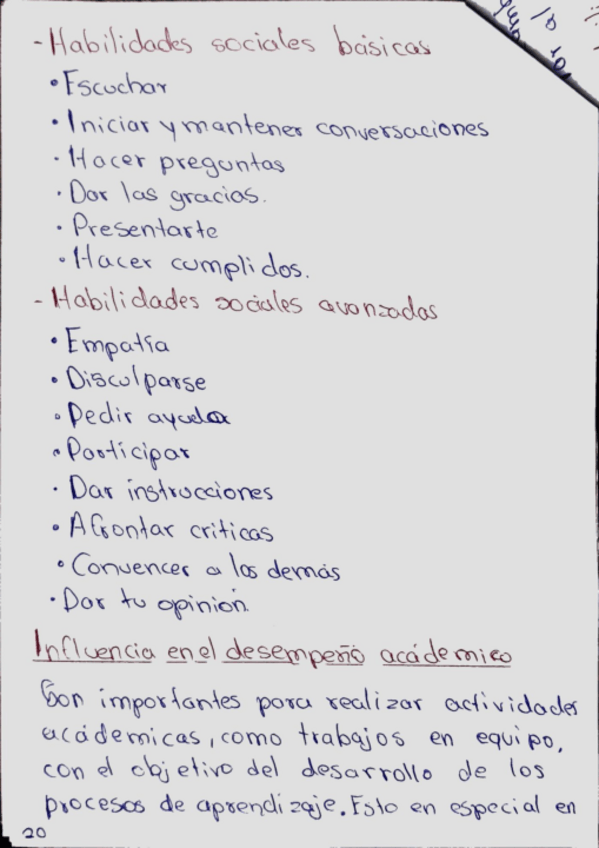 - Habilidades sociales básicas
• Escuchar
• Iniciar y mantener conversaciones
• Hacer preguntas
• Dar las gracias.
• Presentarte
• Hacer cumplidos.
- Habilidades sociales avanzadas
• Empatía
• Disculparse
• Pedir ayuda
• Participar
• Dar instrucciones
• Afrontar criticas
• Convencer a los demás
• Dar tu opinión
Influencia en el desempeño académico
Son importantes para realizar actividades
académicas, como trabajos en equipo,
con el objetivo del desarrollo de los
procesos de aprendizaje. Esto en especial en
20